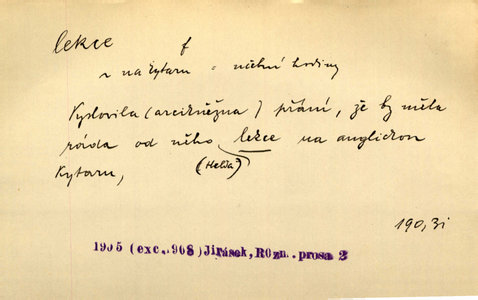 lekce f
na kytaru = učební hodiny
Vyslovila (arcikněžna) přání, že by měla
ráda od něho lekce na anglickou
kytaru, (Helda)
190,31
1905 (exc. 908) Jirásek, Různ. prosa 2